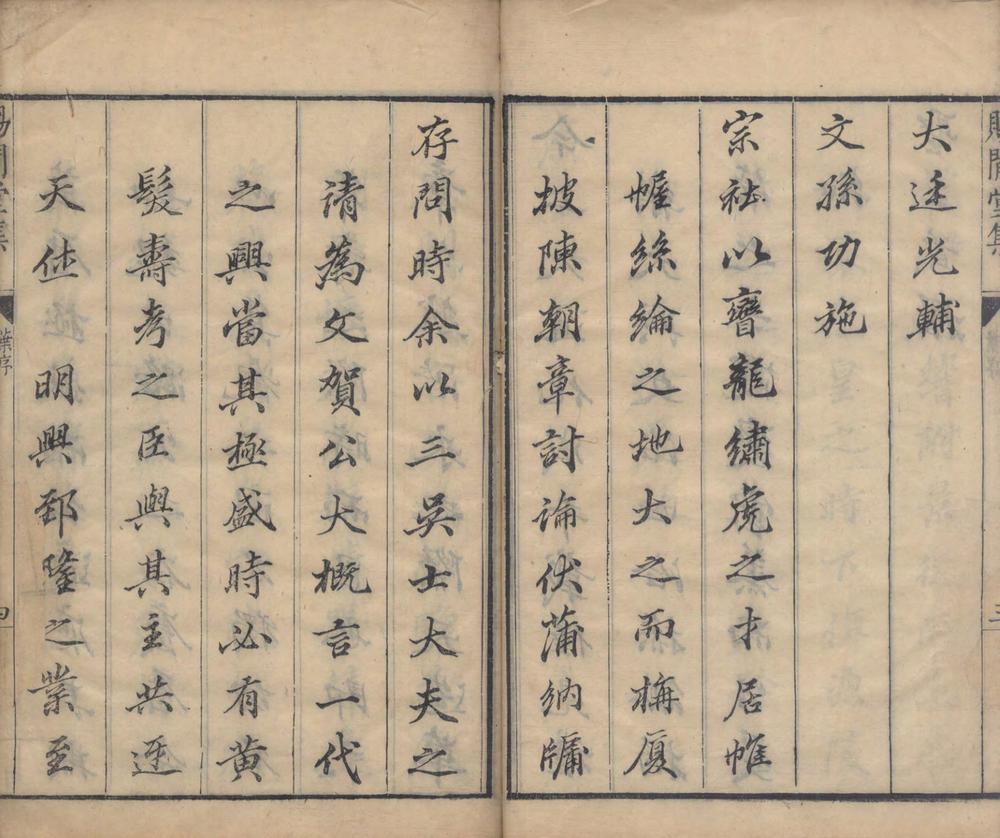 賜閒堂集
三
大廷光輔
文孫功施
宗社以龍繡虎之才居帷
幄絲綸之地大之而栴厦
披陳朝章討論伏蒲納牖
存問時余以三吳士大夫之
請爲文賀公大概言一代
之興當其極盛時必有黃
髮壽考之臣與其主共迓
天休明興郅隆之業至
賜閒堂集
葉序
四